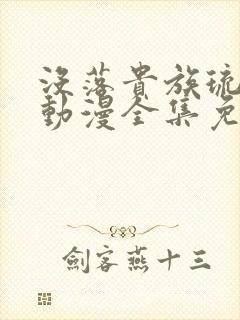 沒落貴族琉
動漫全集免
劍客燕十三